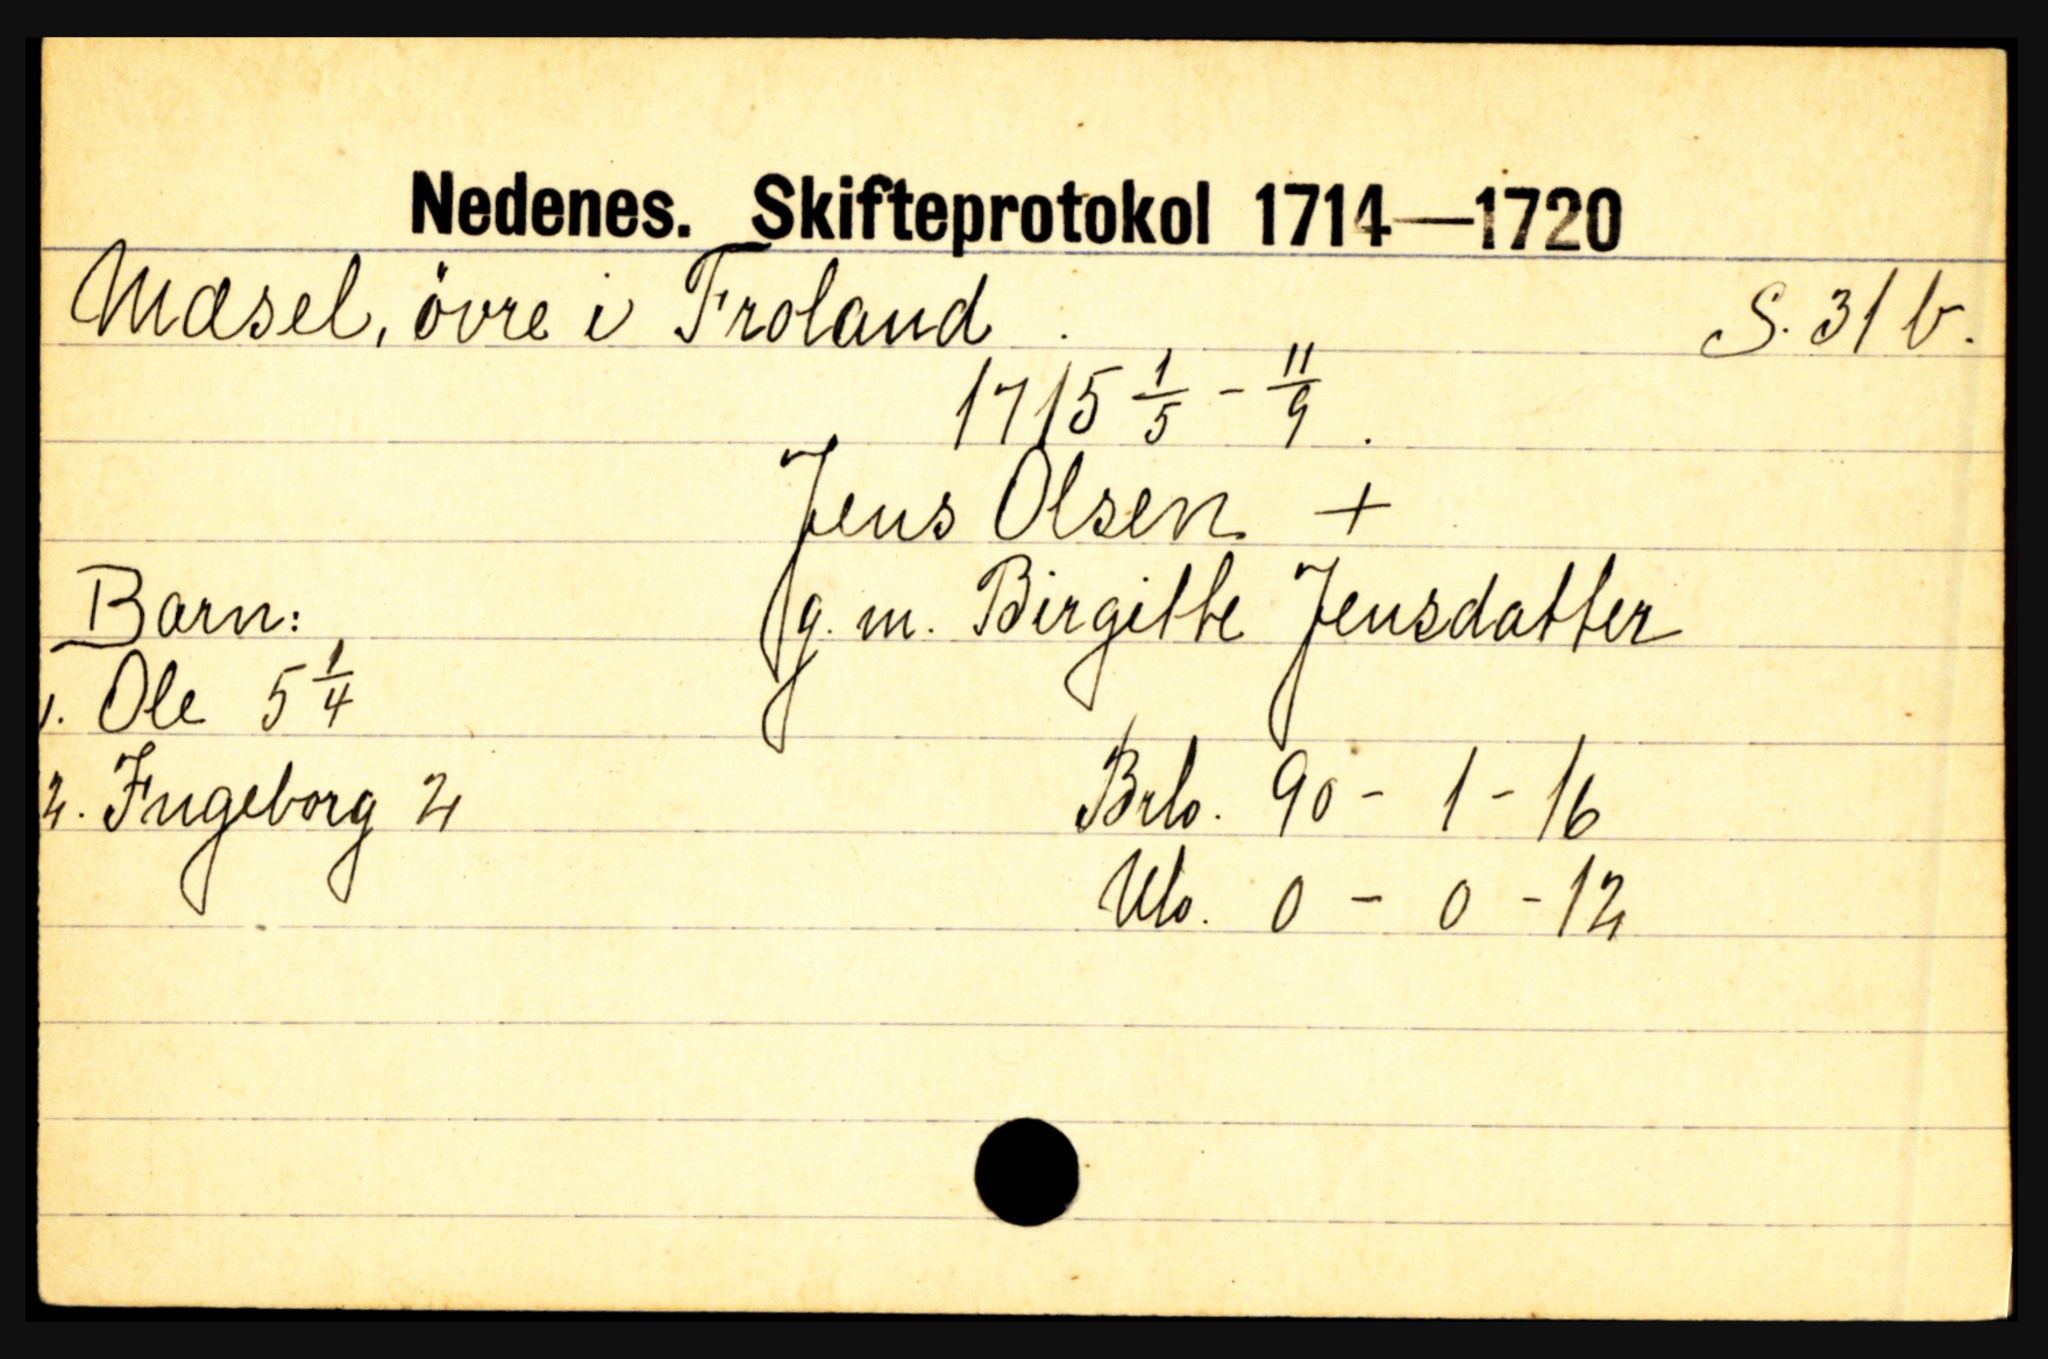 Nedenes. Skifteprotokol 1714—1720
Mæsel, övre i Froland. S. 31 b.
1715 1/5 - 11/9.
Jens Olsen +
Barn: g. m. Birgitte Jensdatter
1. Ole 5 1/4
2. Ingeborg 2 Brlo. 90 - 1 - 16
Ulo. 0 - 0 - 12